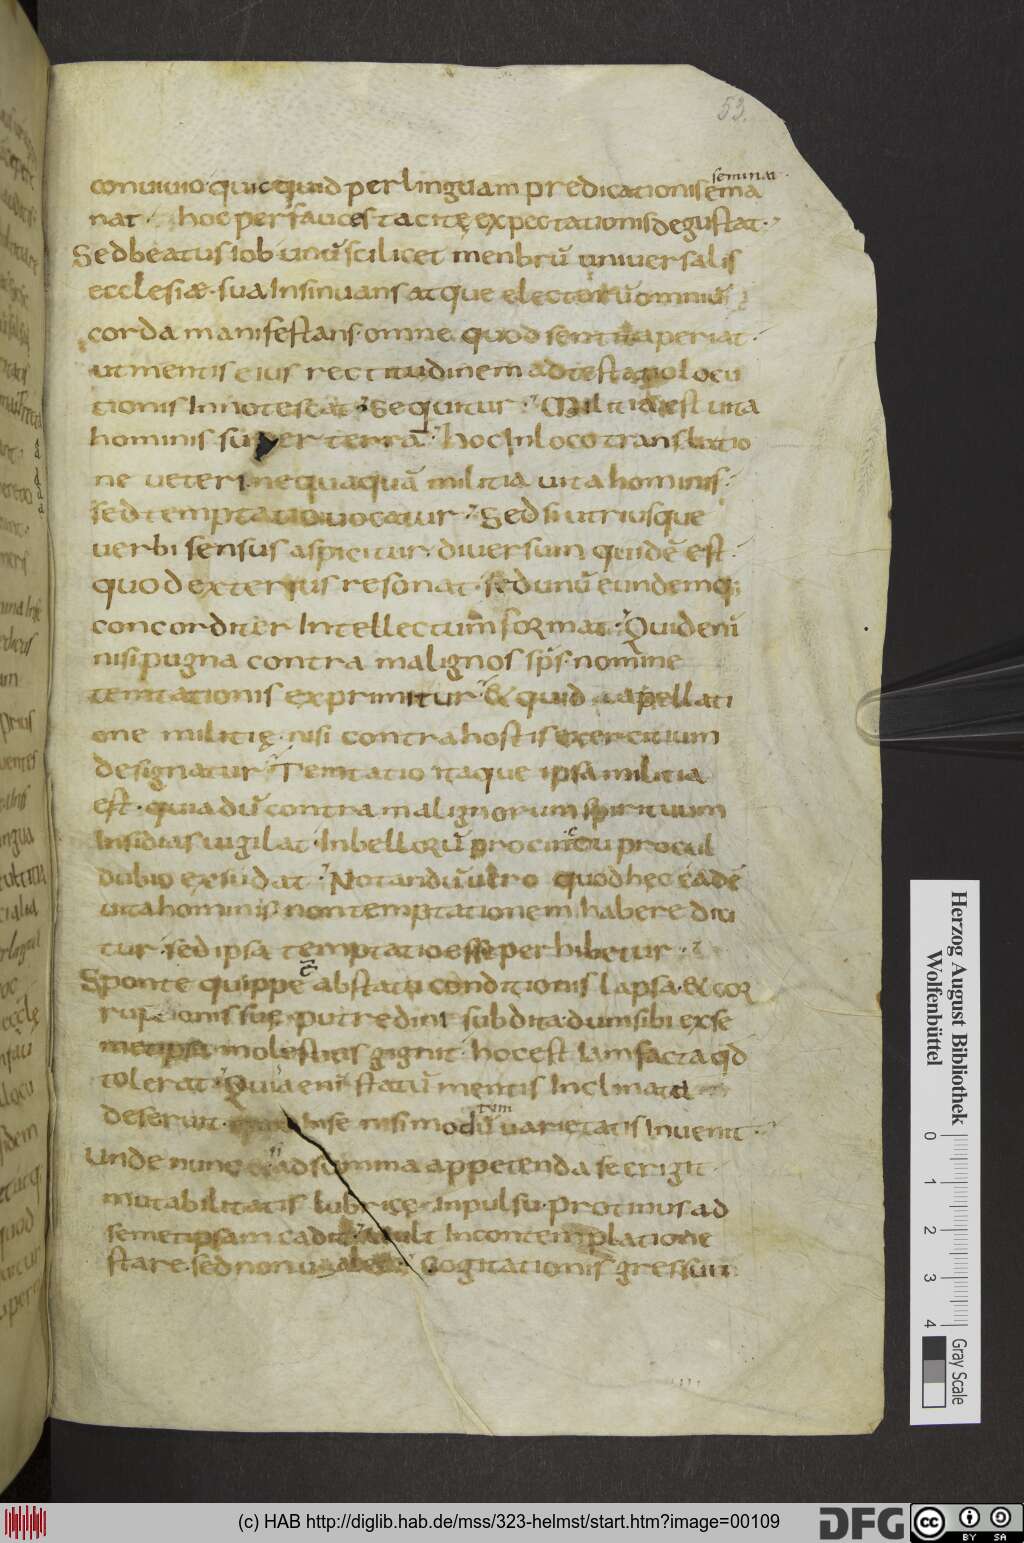 53.
seminat.
conuiuio· quicquid per linguam predicationis ema
nat· hoc per fauces tacitę expectationis degustat·
Sed beatus iob unũ scilicet menbrũ uniuersalis
ecclesiæ· sua Insinuans atque electorũ omniũ
corda manifestans· omne quod sentit aperiat·
ut mentis eius rectitudinem ad testatio locu
tionis Innotescat· Sequitur· Militia est uita
hominis super terrã· hoc In loco translatio
ne ueteri nequaquã militia uita hominis·
sed temptatio uocatur· Sed si utriusque
uerbi sensus aspicitur· diuersum quidẽ est·
quod exterius resonat· sed unũ eundemq;
concorditer Intellectum format· Quid eni
nisi pugna contra malignos sp̃s· nomine
temtationis exprimitur· & quid appellati
one militię· nisi contra hostis exercitium
designatur· Temtatio itaque ipsa militia
est· quia dũ contra malignorum spirituum
Insidias uigilat· In bellorũ procinctu procul
dubio exsudat· Notandũ uero quod hęc eadẽ
uita hominis non temptationem habere dici
tur· sed ipsa temptatio esse perhibetur·
Sponte quippe ab statu conditionis lapsa· & cor
ruptionis suę putredini subdita· dum sibi exse
metipsa molestias gignit· hoc est Iam facta qd
tolerat· Quia enĩ statũ mentis Inclinata
deseruit· In se nisi modũ uarietatis Inuenit·
tum
Unde nunc & ad summa appetenda se erigit·
mutabilitatis lubricę Inpulsu· protinus ad
semetipsam cadit· uult In contemplatione
stare· sed non ualet· Cogitationis gressum
Herzog August Bibliothek
Wolfenbüttel
0 1 2 3 4
Gray Scale
(c) HAB http://diglib.hab.de/mss/323-helmst/start.htm?image=00109
DFG
cc BY SA